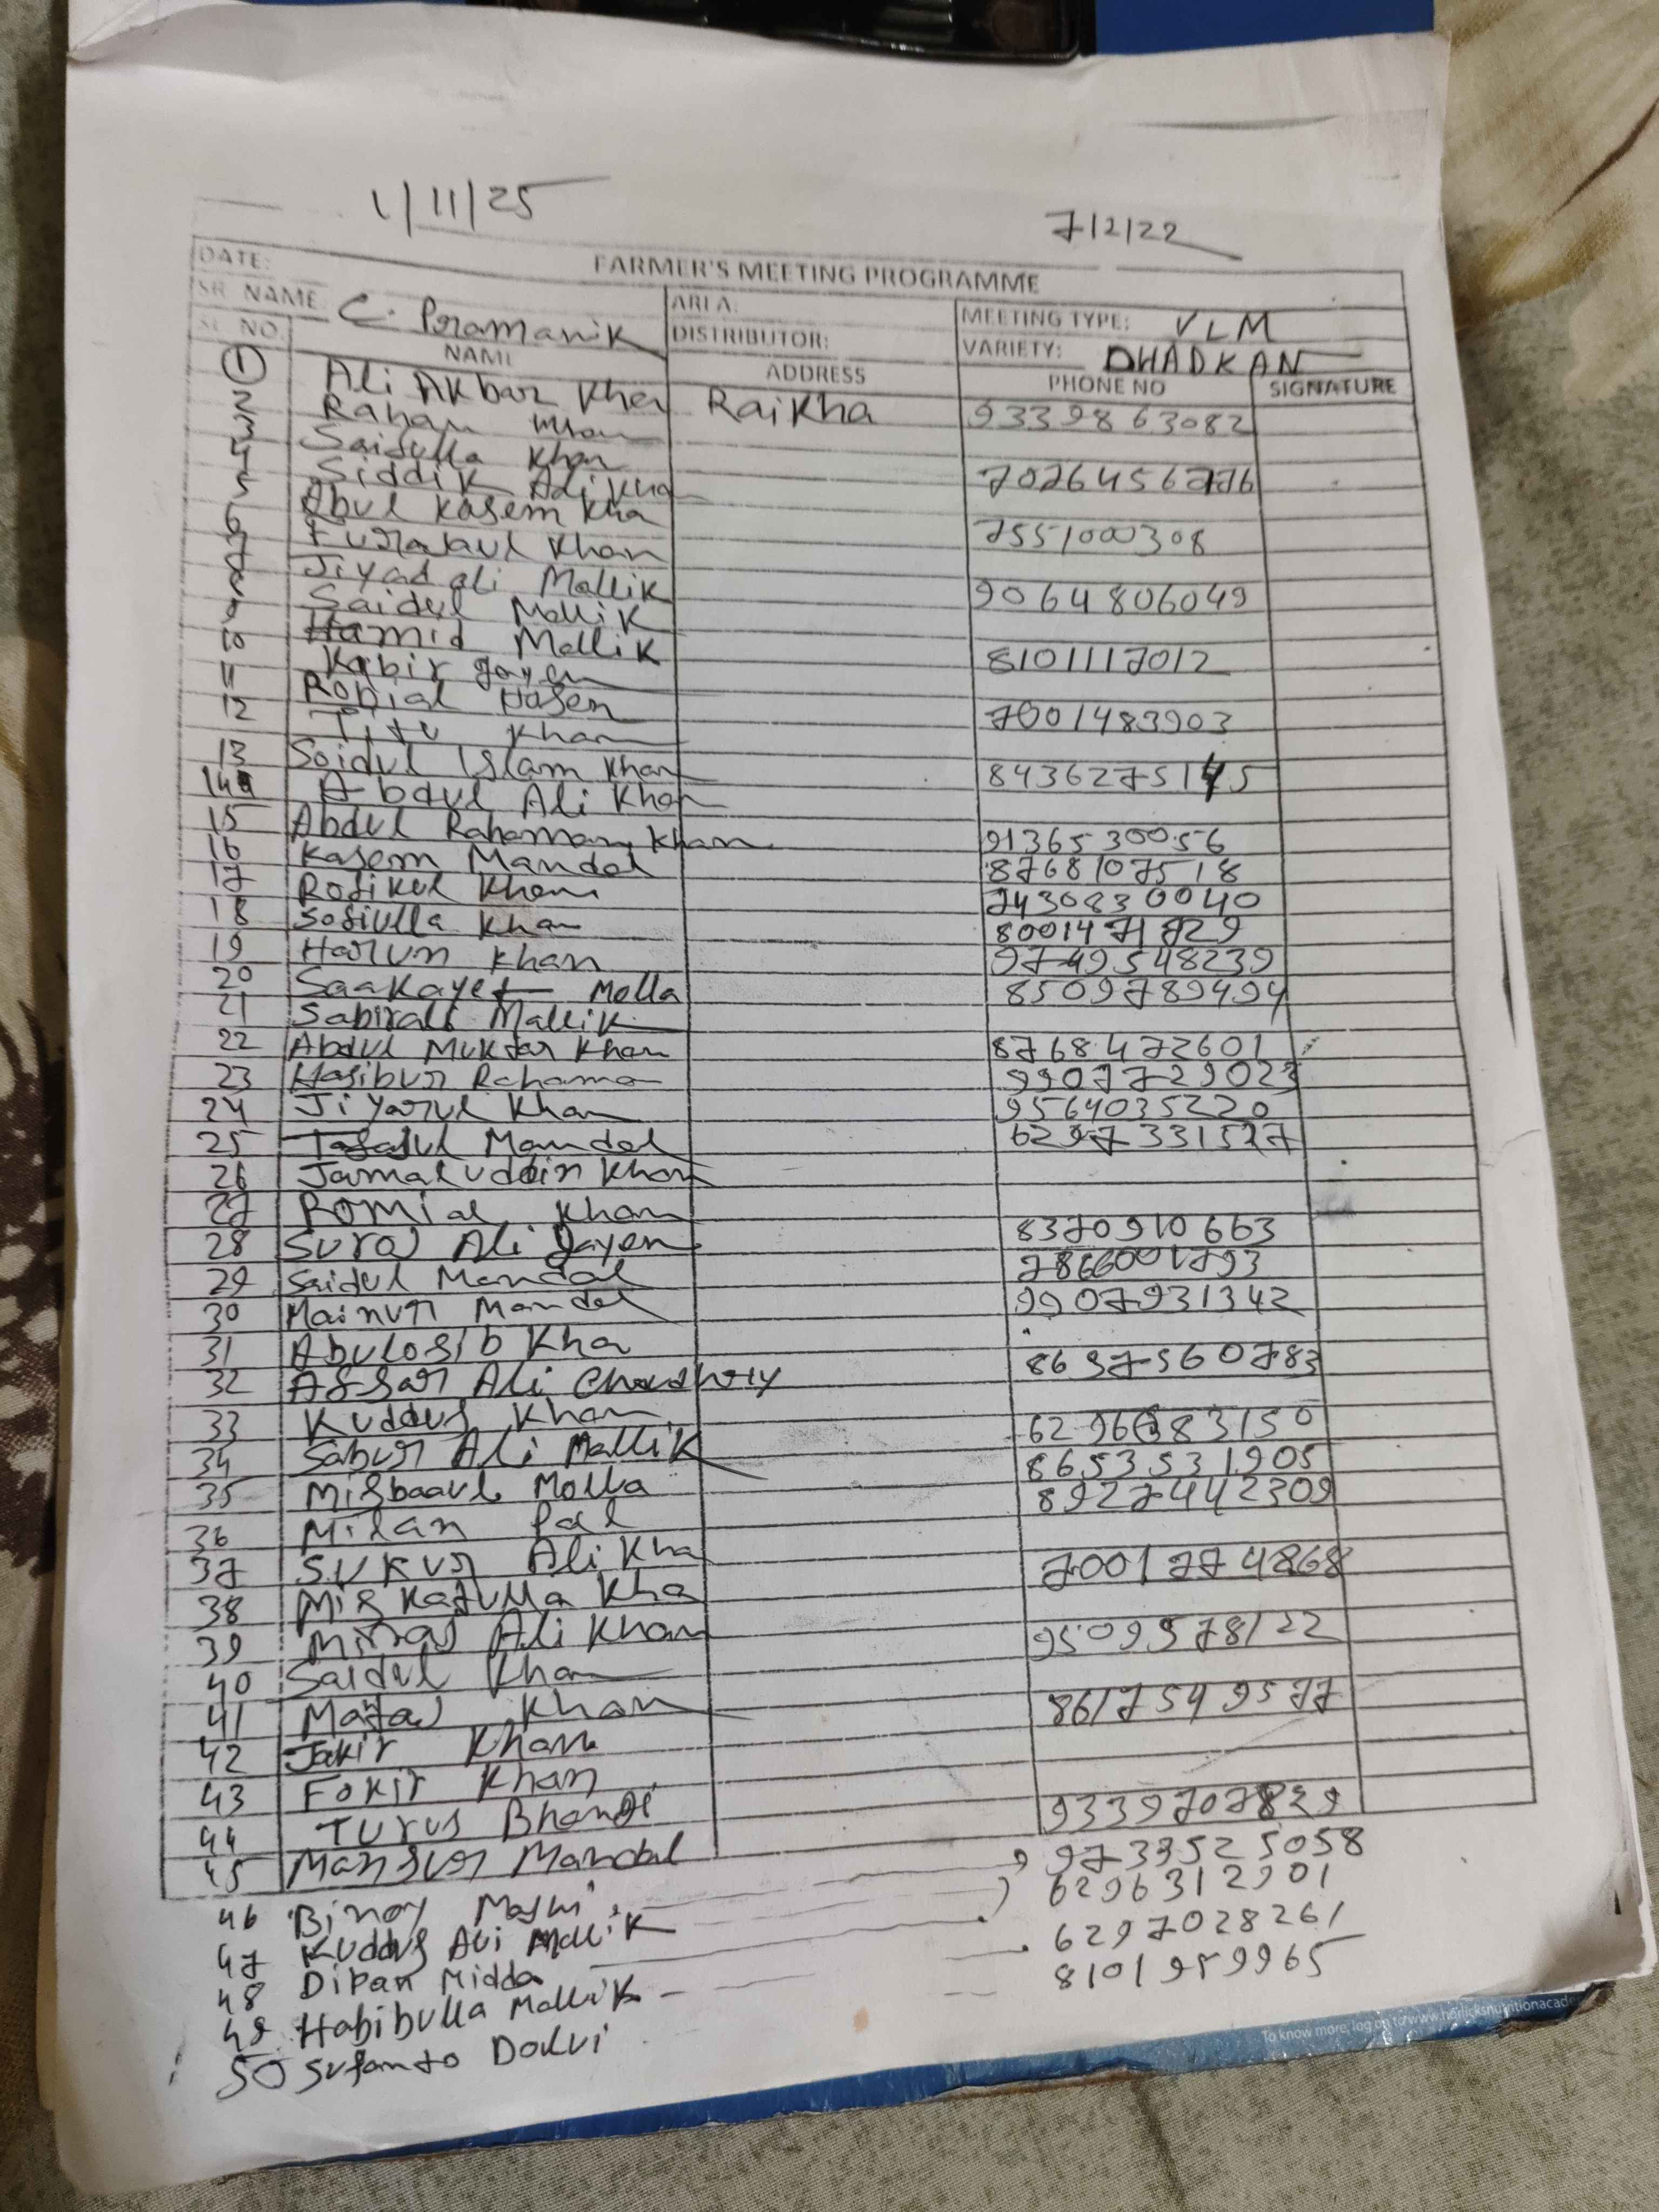 1/11/25
7/2/22
FARMER'S MEETING PROGRAMME
DATE:
SR. NAME: C. Pramanik AREA: MEETING TYPE: VLM
DISTRIBUTOR: VARIETY: DHADKAN
SL. NO. NAME ADDRESS PHONE NO SIGNATURE
1 Ali Akbar Khan Raikha 9339863082
2 Rahan
3 Saidulla Khan
4 Siddik Ali Kha
5 Abul Kasem Kha 7551000308
6 Khan
7 Jiyad ali Mallik 9064806049
8 Saidul Mallik
9 Hamid Mallik 8101117012
10 Kabir Gayen
11 Robial Hosen 7001483903
12 Titu Khan
13 Soidul Islam Khan
14 Abdul Ali Khan
15 Abdul Rahaman Khan 9136530056
16 Kasem Mandal 8768107518
17 Rofikul Khan 7430830040
18 Sofiulla Khan
19 Harun Khan 9749548239
20 Saakayet Molla 8509789494
21 Sabirali Mallik
22 Abdul Muktar Khan 8768472601
23 Hasibur Rahaman
24 Jiyarul Khan 9564035220
25 Tafajul Mandal 6297331527
26 Jamaluddin Khan
27 Romial Khan
28 Suraj Ali Gayen 8370910663
29 Saidul Mandal 7866001793
30 Mainur Mandal 9907931342
31 Abulosib Kha
32 Afsar Ali Choudhury 8637560783
33 Kuddus Khan
34 Sabur Ali Mallik
35 Misbaaul Molla 8653531905
36 Milan Pal 8927442309
37 Sukur Ali Kha
38 Kha 7001774868
39 Miraj Ali Khan
40 Saidul Khan 9509578122
41 Khan
42 Jakir Khan 8617549577
43 Fokir Khan
44 Turus
45 Mansur Mandal
46 Binoy Majhi 9733525058
47 Kuddus Ali Mallik 6296312901
48 Dipan Midda 6297028261
49 Habibulla Mallik 8101959965
50 Sufanto Dolui
To know more, log on to www.horlicksnutritionacade